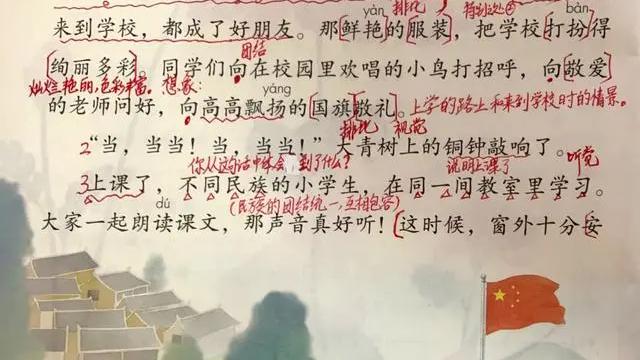 yàn 排比 特别之处 bàn
来到学校，都成了好朋友。那鲜艳的服装，把学校打扮得
团结
绚丽多彩。同学们向在校园里欢唱的小鸟打招呼，向敬爱
灿烂艳丽，色彩丰富。 想家： yáng
的老师问好，向高高飘扬的国旗敬礼。上学的路上和来到学校时的情景。
排比 视觉
2“当，当当！当，当当！”大青树上的铜钟敲响了。
你从这句话中体会到了什么？ 说明上课了 听觉
3上课了，不同民族的小学生，在同一间教室里学习。
dú （民族的团结统一，互相包容）
大家一起朗读课文，那声音真好听！这时候，窗外十分安